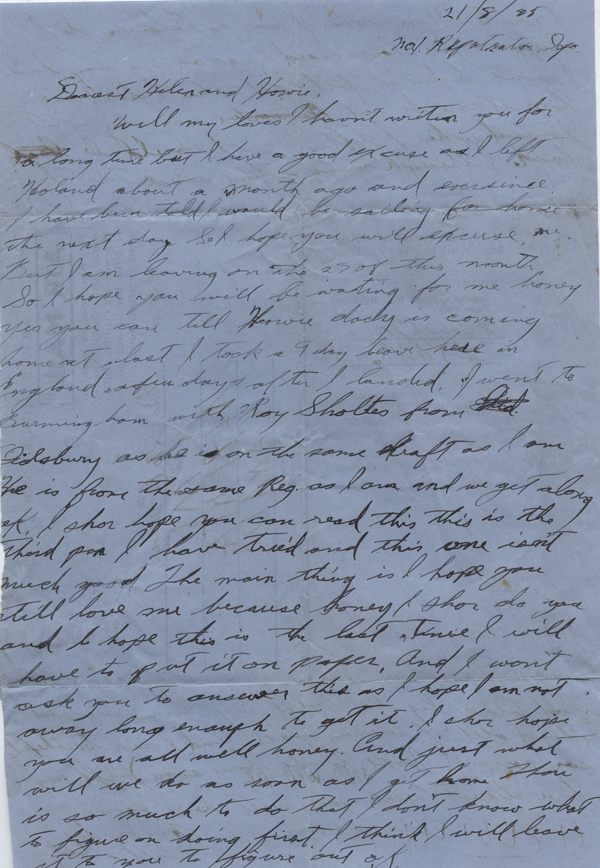 21/8/45
No1. Repatriation Dpo.
Dearest Helen and Howie.
Well my loves I havnt writen you for
a long time but I have a good excuse as I left
Holand about a month ago and eversince
I have been told I would be sailing for home
the next day. So I hope you will excuse, me.
But I am leaving on the 29 of this month
So I hope you will be wating for me honey
yes you can tell Howie dady is coming
home at last I took a 9 day leave here in
England a few days after I landed. I went to
Burmingham with Roy Sholtes from
Didsbury as he is on the same draft as I am
He is from the same Reg. as I am and we get along
ok. I shor hope you can read this this is the
third pen I have tried and this one isn't
much good The main thing is I hope you
still love me because honey I shor do you
and I hope this is the last time I will
have to put it on paper. And I won't
ask you to answer this as I hope I am not
away long enough to get it. I shor hope
you are all well honey. And just what
will we do as soon as I get home Thair
is so much to do that I don't know what
to figure on doing first. I think I will leave
it to you to figure out